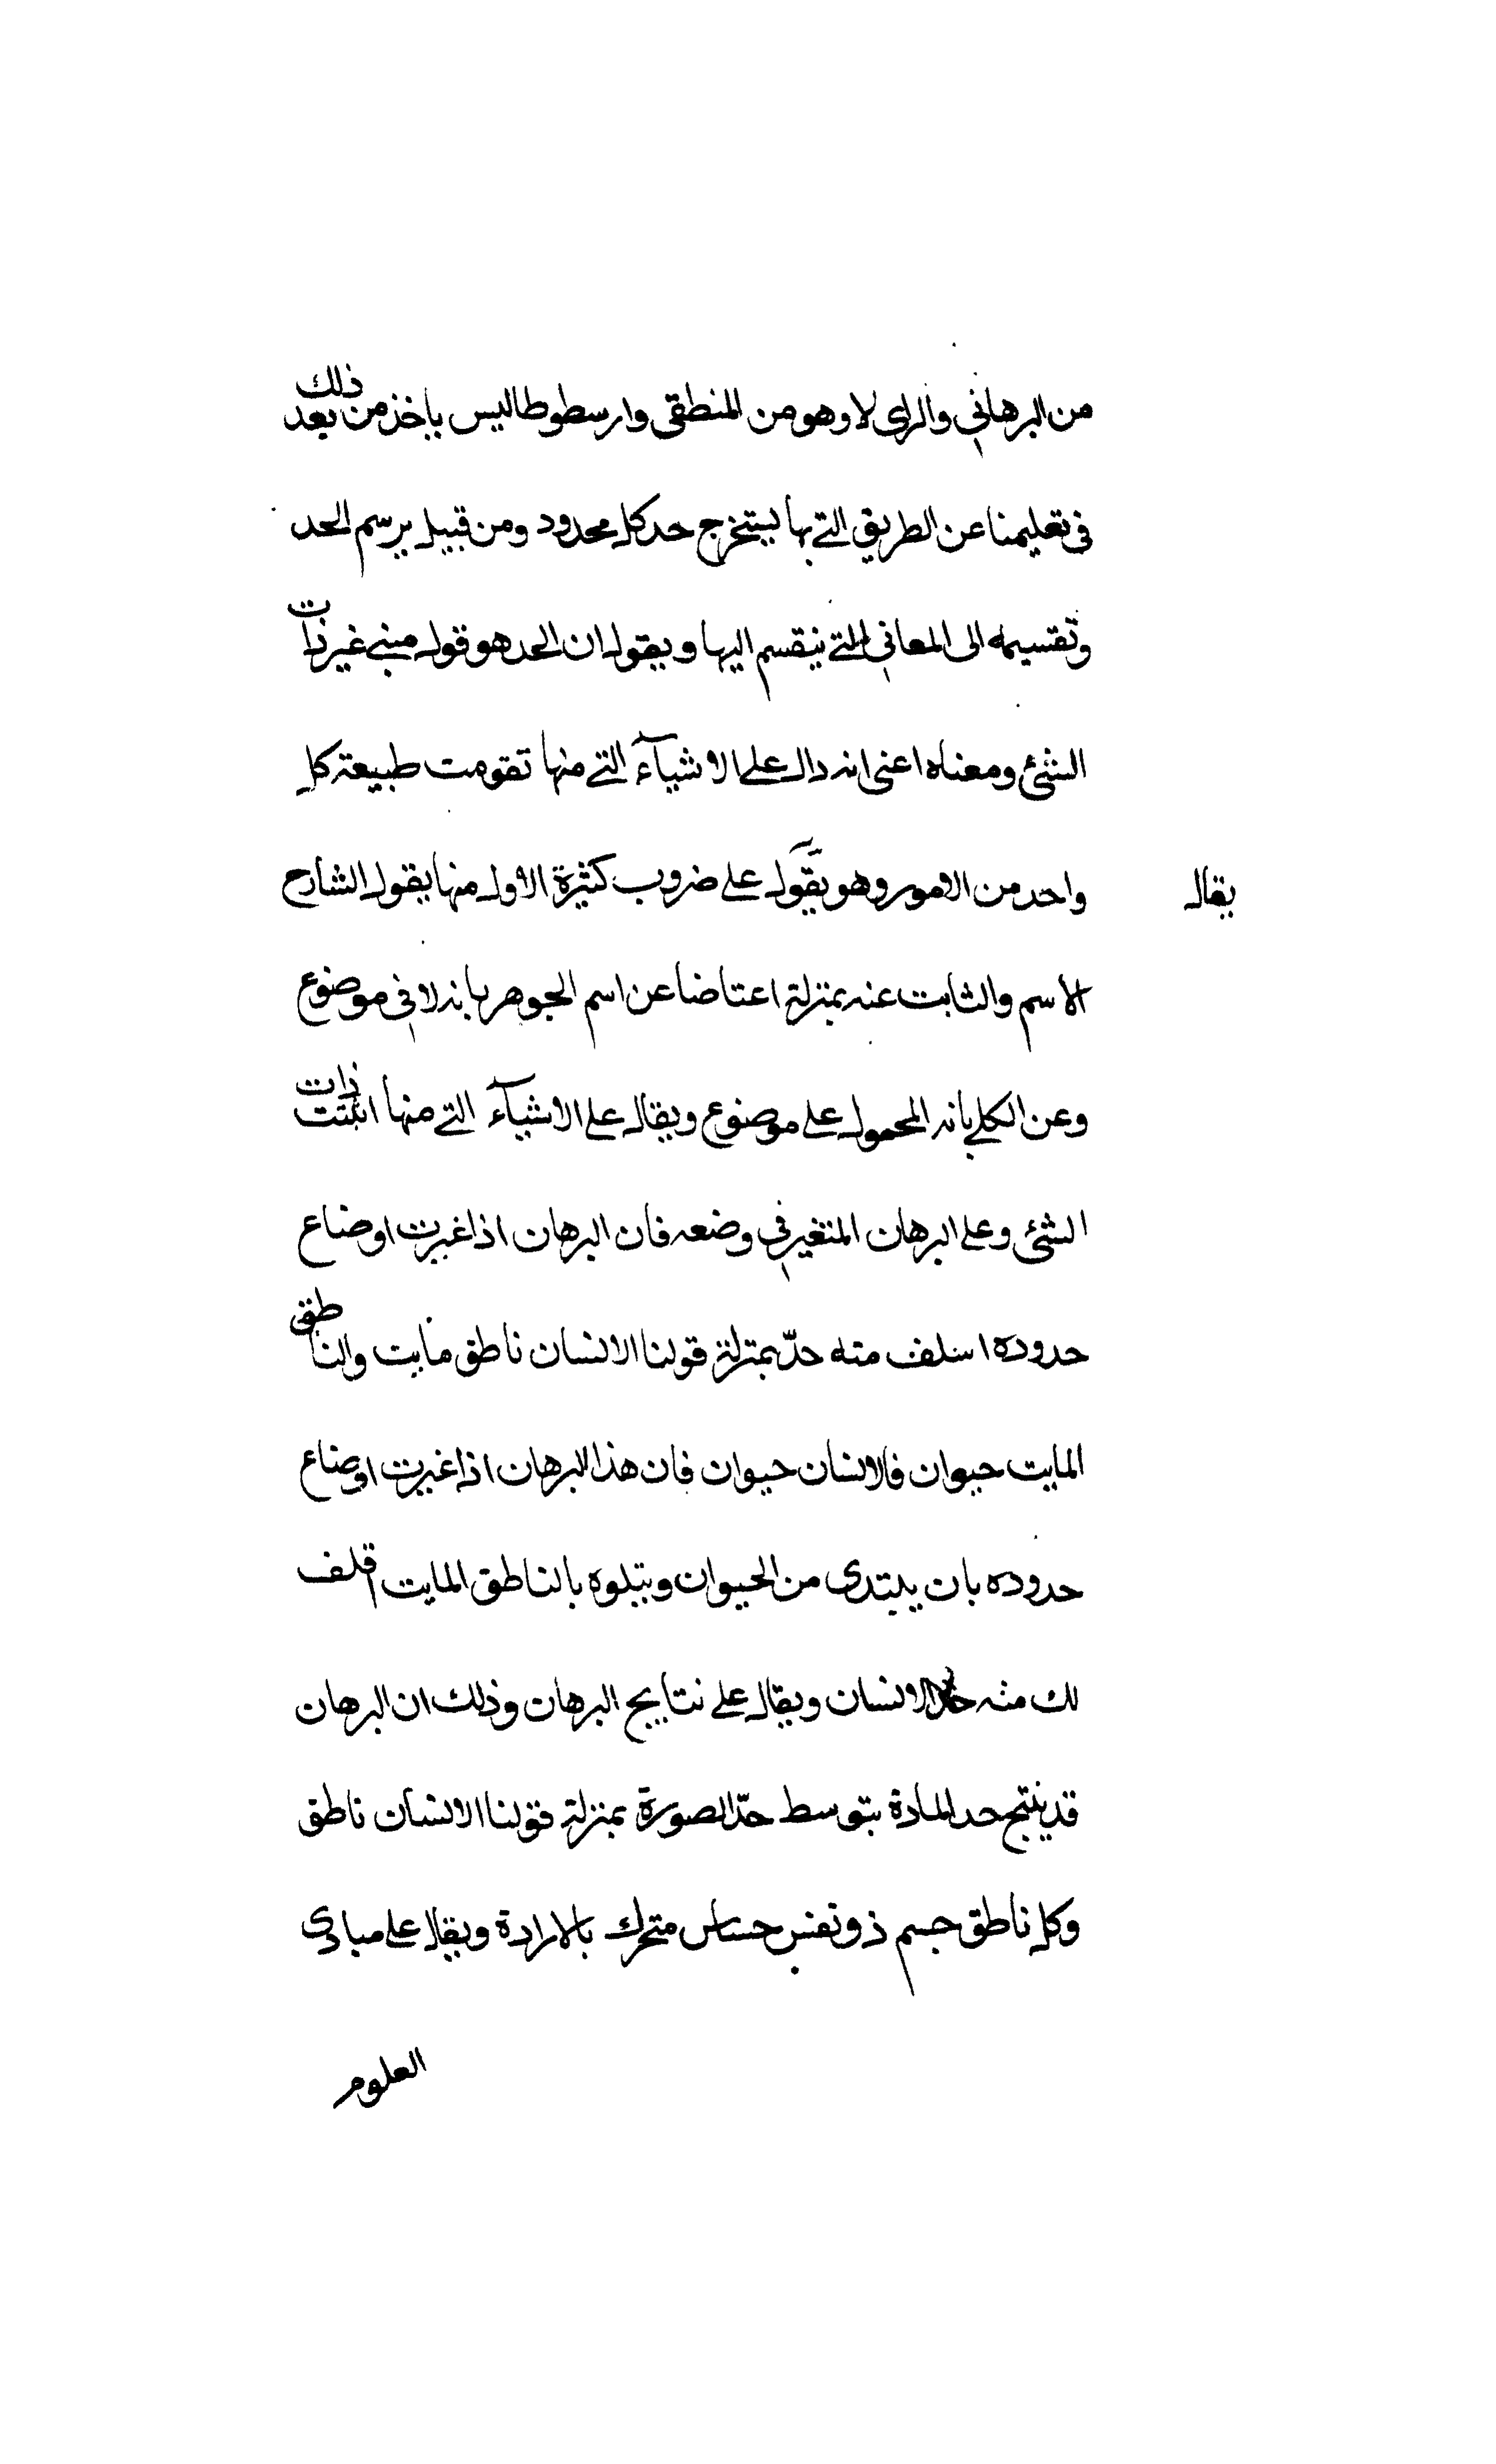 من البرهاني والراى لا وهو من المنطقى وارسطوطاليس ياخذ من بعد ذلك
فى تعليمنا عن الطريق التى بها يستخرج حد كل محدود ومن قبيل يرسم الحد
وتقسيمه الى المعاني التى ينقسم اليها ويقول ان الحد هو قول مبنى غير ذات
الشئ ومعناه اعنى انه دال على الاشيآء التى منها تقومت طبيعة كل
واحد من الامور وهو يقول على ضروب كثيرة الاول منها يقول الشارح
يقال
الاسم والثابت عنه بمنزلة اعتاضنا عن اسم الجوهر بانه لا في موضوع
وعن الكلى بانه المحمول على موضوع ويقال على الاشيآء التى منها ذات
الشئ وعلى البرهان المتغير في وضعه فان البرهان اذا غيرت اوضاع
حدوده منه حدّ بمنزلة قولنا الانسان ناطق مايت والناطق
المايت حيوان فالانسان حيوان فان هذا البرهان اذا غيرت اوضاع
حدوده بان يبتدى من الحيوان ويتلوه بالناطق المايت
لك منه الانسان ويقال على نتايج البرهان وذلك ان البرهان
قد ينتج حد المادة بتوسط حدّ الصورة بمنزلة قولنا الانسان ناطق
وكل ناطق جسم ذو نفس حساس متحرك بالارادة ويقال على مبادى
العلوم